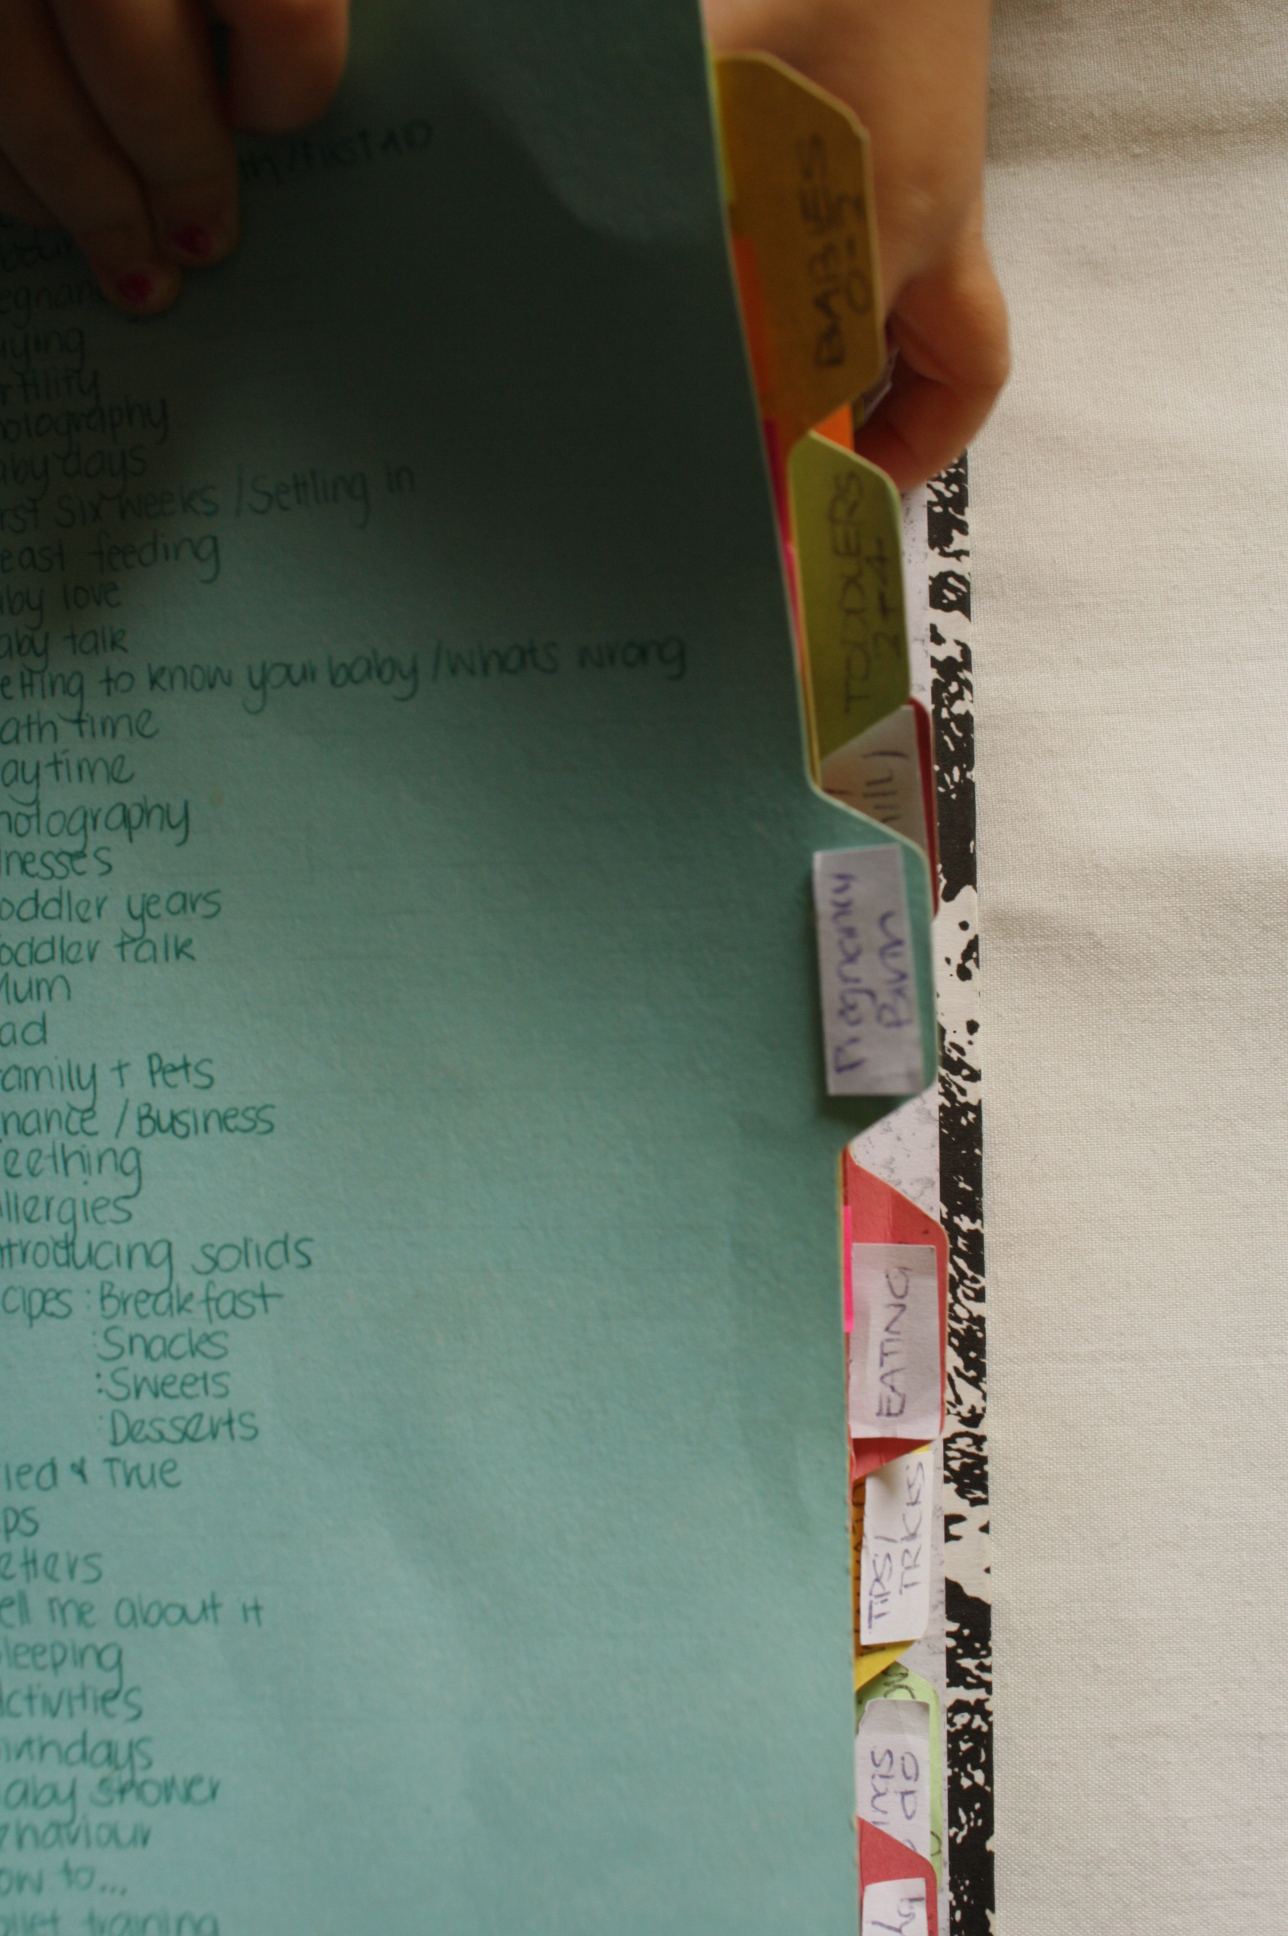 th/First AID
egnan
uying
rtility
hotography
aby days
rst six weeks / Settling in
east feeding
aby love
aby talk
etting to know your baby / whats wrong
ath time
aytime
hotography
lnesses
oddler years
oddler talk
Mum
ad
amily + Pets
nance / Business
eething
llergies
ntroducing solids
cipes : Breakfast
: Snacks
: Sweets
: Desserts
ried & True
ps
etters
ell me about it
leeping
ctivities
irthdays
aby shower
ehaviour
ow to...
oilet training
BABIES
0-2
TODDLERS
2-4
Pregnancy
Birth
EATING
TIPS/
TRICKS
do